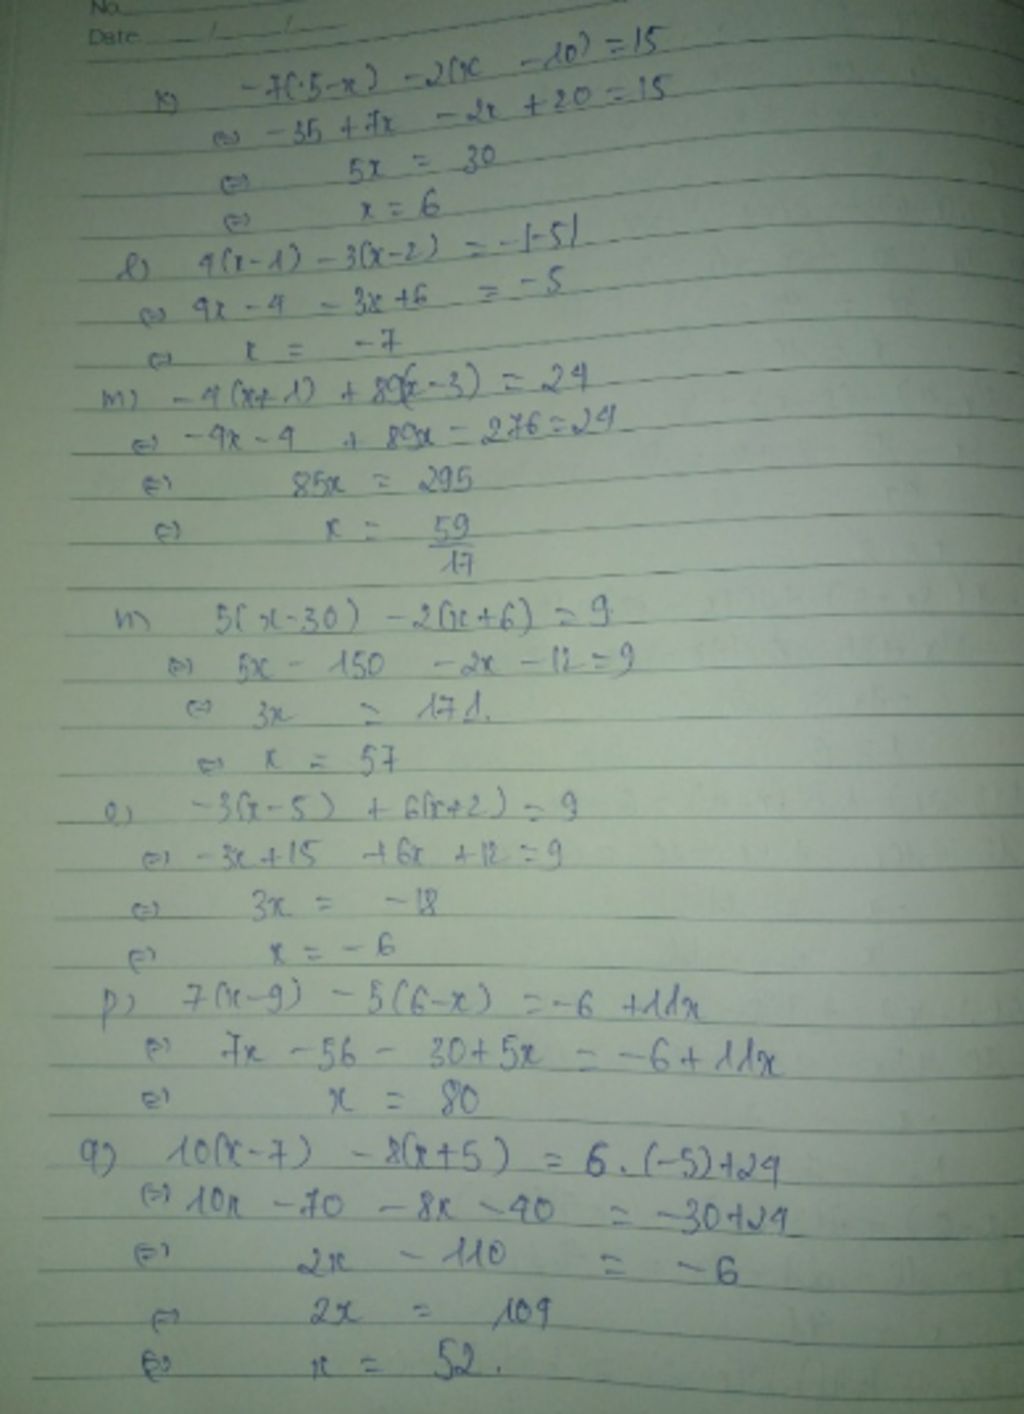 No.
Date / /
k) -7(5-x) -2(x -10) = 15
⇔ -35 + 7x - 2x + 20 = 15
⇔ 5x = 30
⇔ x = 6
l) 4(x-1) - 3(x-2) = -|-5|
⇔ 4x - 4 - 3x + 6 = -5
⇔ x = -7
m) -4(x+1) + 89(x-3) = 24
⇔ -4x - 4 + 89x - 276 = 24
⇔ 85x = 295
⇔ x = 59/17
n) 5(x-30) - 2(x+6) = 9
⇔ 5x - 150 - 2x - 12 = 9
⇔ 3x = 171.
⇔ x = 57
o) -3(x-5) + 6(x+2) = 9
⇔ -3x + 15 + 6x + 12 = 9
⇔ 3x = -18
⇔ x = -6
p) 7(x-9) - 5(6-x) = -6 + 11x
⇔ 7x - 56 - 30 + 5x = -6 + 11x
⇔ x = 80
q) 10(x-7) - 8(x+5) = 6.(-5)+24
⇔ 10x - 70 - 8x - 40 = -30+24
⇔ 2x - 110 = -6
⇔ 2x = 104
⇔ x = 52.